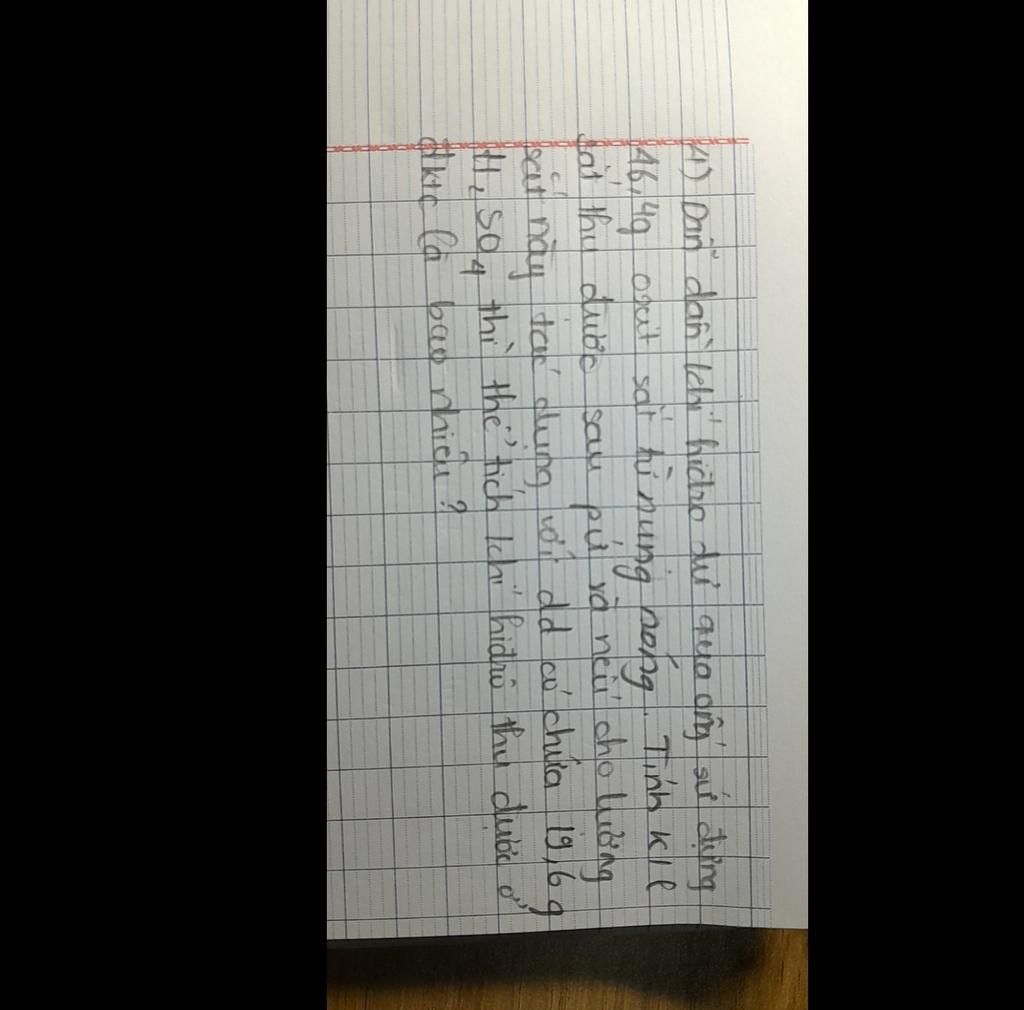 4) Dẫn dần khí hiđro dư qua ống sứ đựng
46,4g oxit sắt từ nung nóng. Tính KLl
sắt thu được sau pứ và nếu cho lượng
sắt này tác dụng với dd có chứa 19,6g
H₂SO₄ thì thể tích khí hiđrô thu được ở
đktc là bao nhiêu?